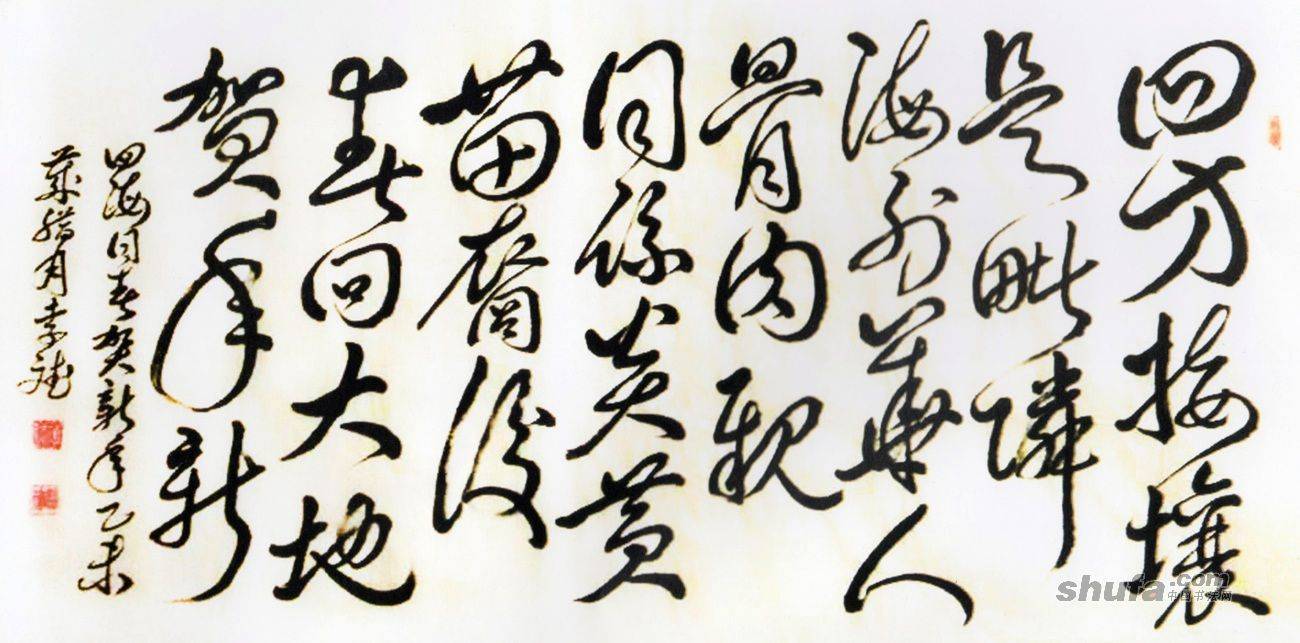 四方接壤
是毗隣
海外華人
骨肉親
同孫炎黄
苗裔後
春回大地
賀年新
四海同春賀新年乙未
臘月李斌
shufa.com
中国书法网